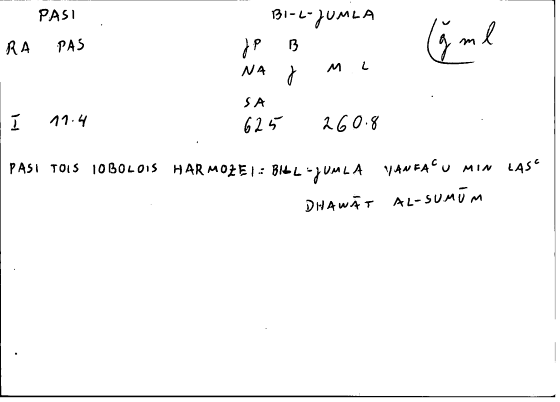 PASI BI-L-JUMLA
RA PAS JP B (ǧml
NA J M L
SA
I 11.4 625 260.8
PASI TOIS IOBOLOIS HARMOZEI: BI-L-JUMLA YANFAᶜU MIN LASᶜ
DHAWĀT AL-SUMŪM